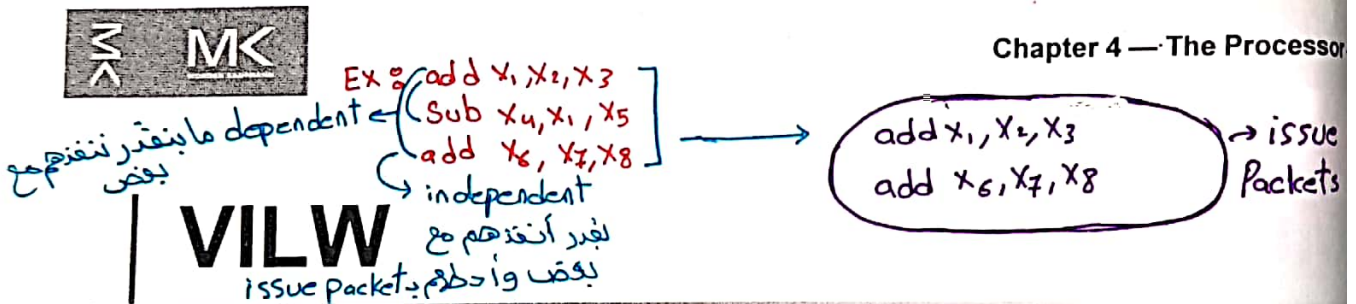 MK
Chapter 4 — The Processor
Ex: add x1, x2, x3
Sub x4, x1, x5
add x6, x7, x8
dependent ما بنقدر ننفذهم مع بعض
independent
نقدر أنفذهم مع
بعض وأحطهم بـ issue packet
add x1, x2, x3
add x6, x7, x8
issue
Packets
VILW